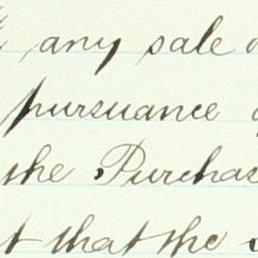 any sale
pursuance
the Purchas
t that the